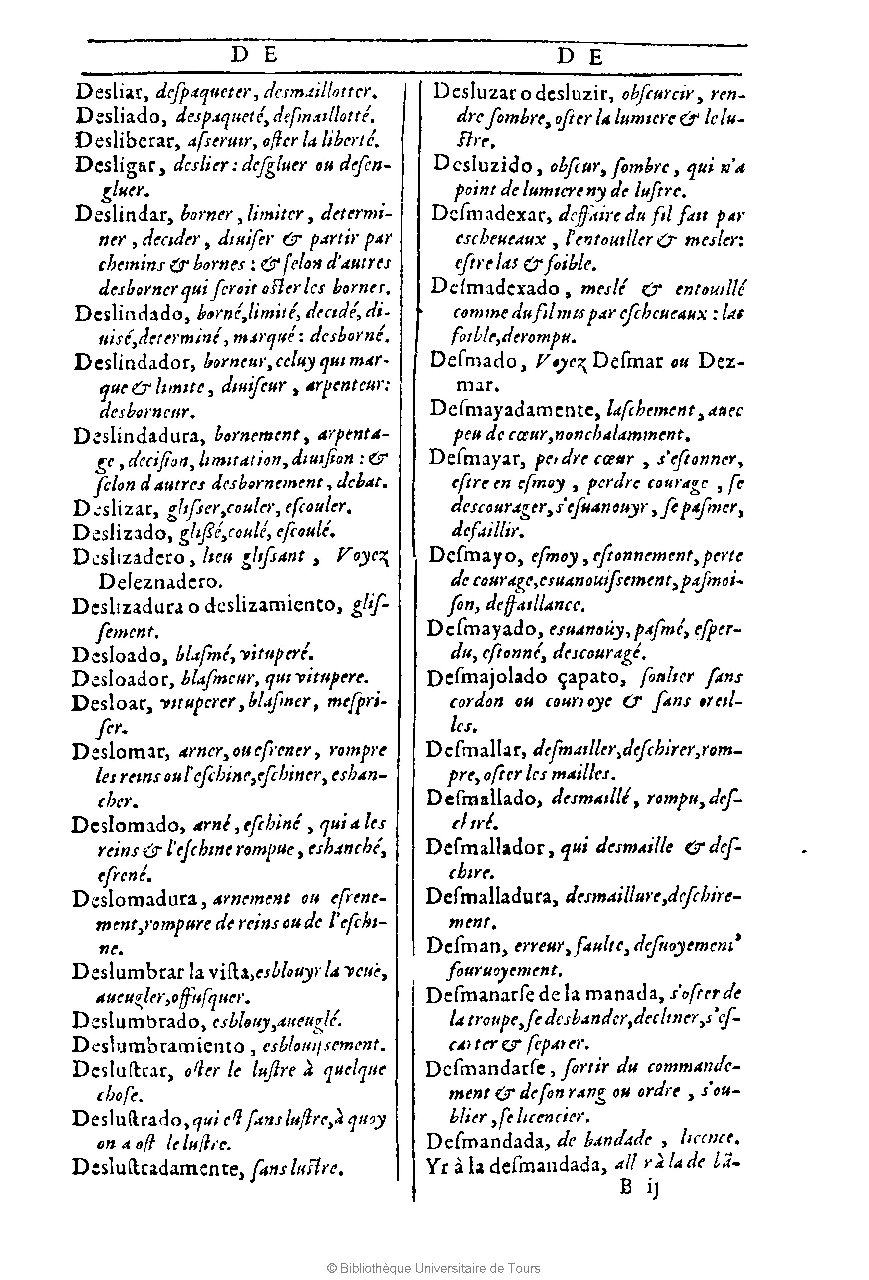 D E
Desliar, despaqueter, desmaillotter.
Desliado, despaqueté, desmaillotté.
Desliberar, asseruir, oster la liberté.
Desligar, deslier : desgluer ou desen-
gluer.
Deslindar, borner, limiter, determi-
ner, decider, diuiser & partir par
chemins & bornes : & selon d'autres
desborner qui seroit oster les bornes.
Deslindado, borné, limité, decidé, di-
uisé, determiné, marqué : desborné.
Deslindador, borneur, celuy qui mar-
que & limite, diuiseur, arpenteur:
desborneur.
Deslindadura, bornement, arpenta-
ge, decision, limitation, diuision : &
selon d autres desbornement, debat.
Deslizar, glisser, couler, escouler.
Deslizado, glissé, coulé, escoulé.
Deslizadero, lieu glissant, Voyez
Deleznadero.
Deslizadura o deslizamiento, glis-
sement.
Desloado, blasmé, vituperé.
Desloador, blasmeur, qui vitupere.
Desloar, vituperer, blasmer, mespri-
ser.
Deslomar, arner, ou esrener, rompre
les reins ou l'eschine, eschiner, eshan-
cher.
Deslomado, arné, eschiné, qui a les
reins & l'eschine rompue, eshanché,
esrené.
Deslomadura, arnement ou esrene-
ment, rompure de reins ou de l'eschi-
ne.
Deslumbrar la vista, esblouyr la veuë,
aueugler, offusquer.
Deslumbrado, esblouy, aueuglé.
Deslumbramiento, esblouissement.
Deslustrar, oster le lustre à quelque
chose.
Deslustrado, qui est sans lustre, à quoy
on a ost le lustre.
Deslustradamente, sans lustre.
D E
Desluzar o desluzir, obscurcir, ren-
dre sombre, oster la lumiere & le lu-
stre.
Desluzido, obscur, sombre, qui n'a
point de lumiere ny de lustre.
Desmadexar, deffaire du fil fait par
escheueaux, l'entouiller & mesler:
estre las & foible.
Desmadexado, meslé & entouillé
comme du fil mis par escheueaux : las
foible, derompu.
Desmado, Voyez Desmar ou Dez-
mar.
Desmayadamente, laschement, auec
peu de cœur, nonchalamment.
Desmayar, perdre cœur, s'estonner,
estre en esmoy, perdre courage, se
descourager, s'esuanouyr, se pasmer,
defaillir.
Desmayo, esmoy, estonnement, perte
de courage, esuanouissement, pasmoi-
son, deffaillance.
Desmayado, esuanoüy, pasmé, esper-
du, estonné, descouragé.
Desmajolado çapato, soulier sans
cordon ou couroye & sans oreil-
les.
Desmallar, desmailler, deschirer, rom-
pre, oster les mailles.
Desmallado, desmaillé, rompu, des-
chiré.
Desmallador, qui desmaille & des-
chire.
Desmalladura, desmaillure, deschire-
ment.
Desman, erreur, faulte, desuoyement
fouruoyement.
Desmanarse de la manada, s'oster de
la troupe, se desbander, decliner, s'es-
carter & separer.
Desmandarse, sortir du commande-
ment & de son rang ou ordre, s'ou-
blier, se licencier.
Desmandada, de bandade, licence.
Yr à la desmandada, all r à la de bã-
B ij
© Bibliothèque Universitaire de Tours